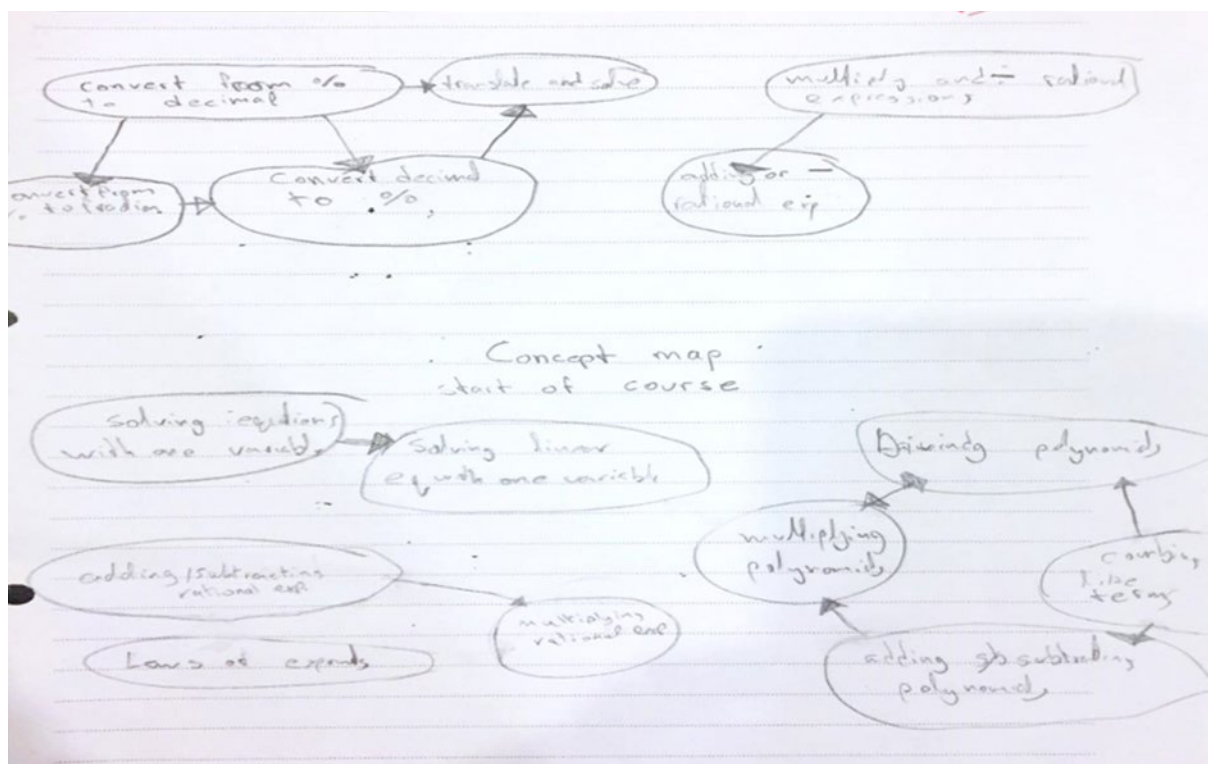 convert from %
to decimal
translate and solve
multiply and ÷ rational
expressions
convert from
% to
Convert decimal
to %
adding or −
rational exp
Concept map
start of course
solving equations
with one variable
Solving linear
eq with one variable
polynomials
multiplying
polynomials
like
terms
adding/subtracting
rational exp
multiplying
rational exp
Laws of
adding
polynomials